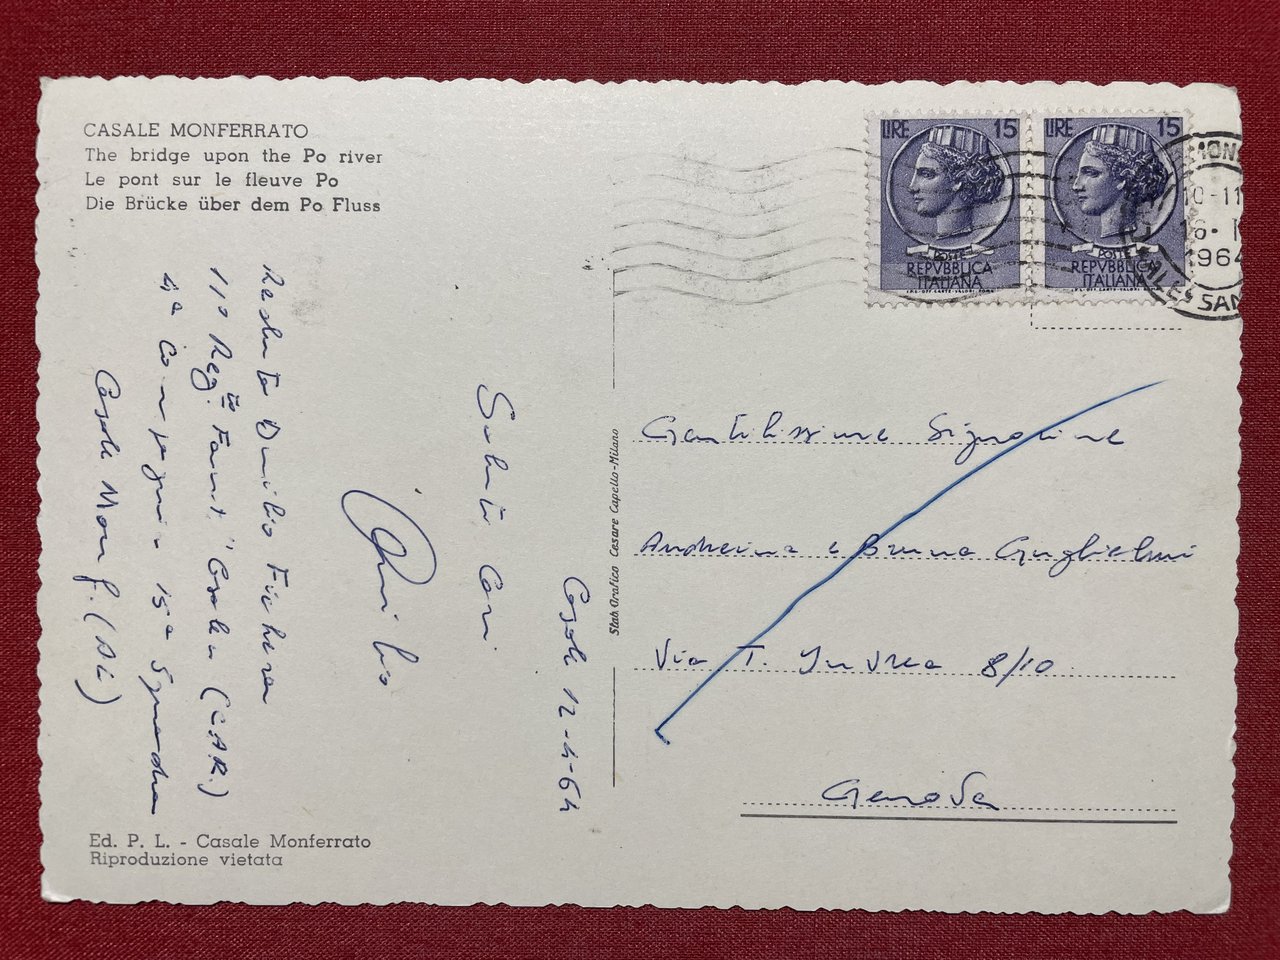 CASALE MONFERRATO
The bridge upon the Po river
Le pont sur le fleuve Po
Die Brücke über dem Po Fluss
Casale 12-4-64
Saluti Cari
Duilio
Recluta Duilio
11º Reg.to Fant. "Casale" (C.A.R.)
4ª Compagnia 15ª Squadra
Casale Monf. (AL)
Ed. P. L. - Casale Monferrato
Riproduzione vietata
Stab. Grafico Cesare Capello-Milano
LIRE 15
POSTE
REPVBBLICA
ITALIANA
LIRE 15
POSTE
REPVBBLICA
ITALIANA
10-11
1964
Gentilissime Signorine
Andreina e Bruna Guglielmi
Via T. Invrea 8/10
Genova